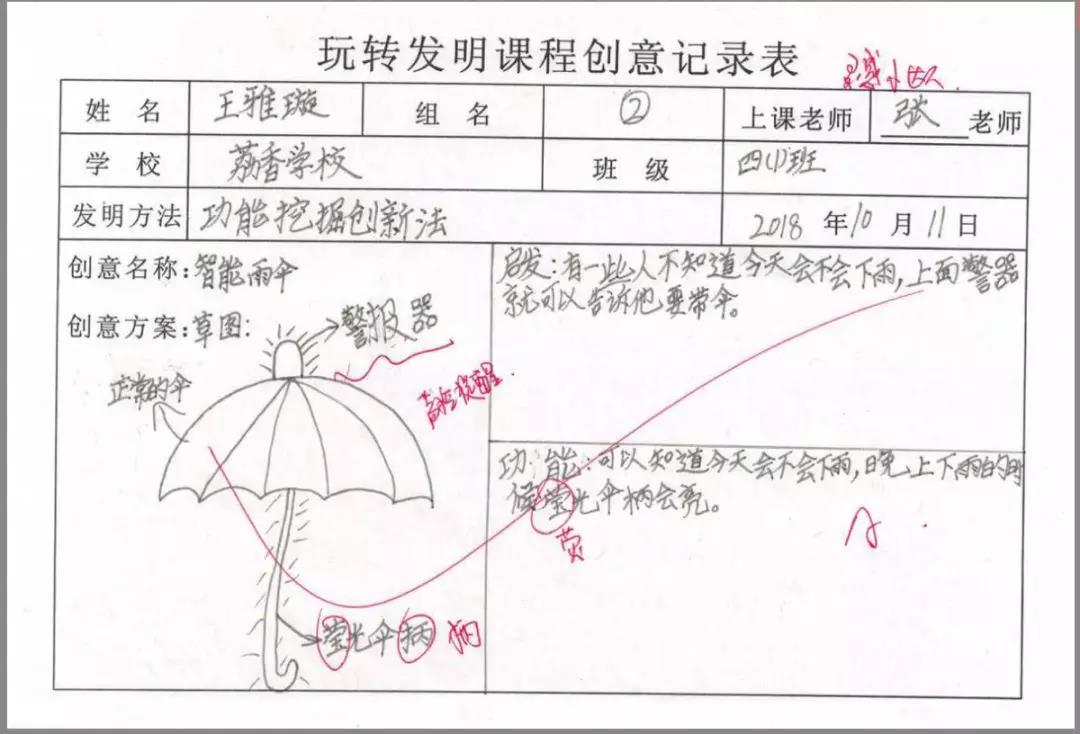 玩转发明课程创意记录表
姓 名 王雅璇 组 名 ② 上课老师 张 老师
学 校 荔香学校 班 级 四(1)班
发明方法 功能挖掘创新法 2018 年 10 月 11 日
创意名称:智能雨伞
创意方案:草图:
警报器
正常的伞
提醒
莹光伞柄 柄
启发:有一些人不知道今天会不会下雨,上面警器
就可以告诉他要带伞。
功 能:可以知道今天会不会下雨,晚上下雨的时
候莹光伞柄会亮。
荧
A